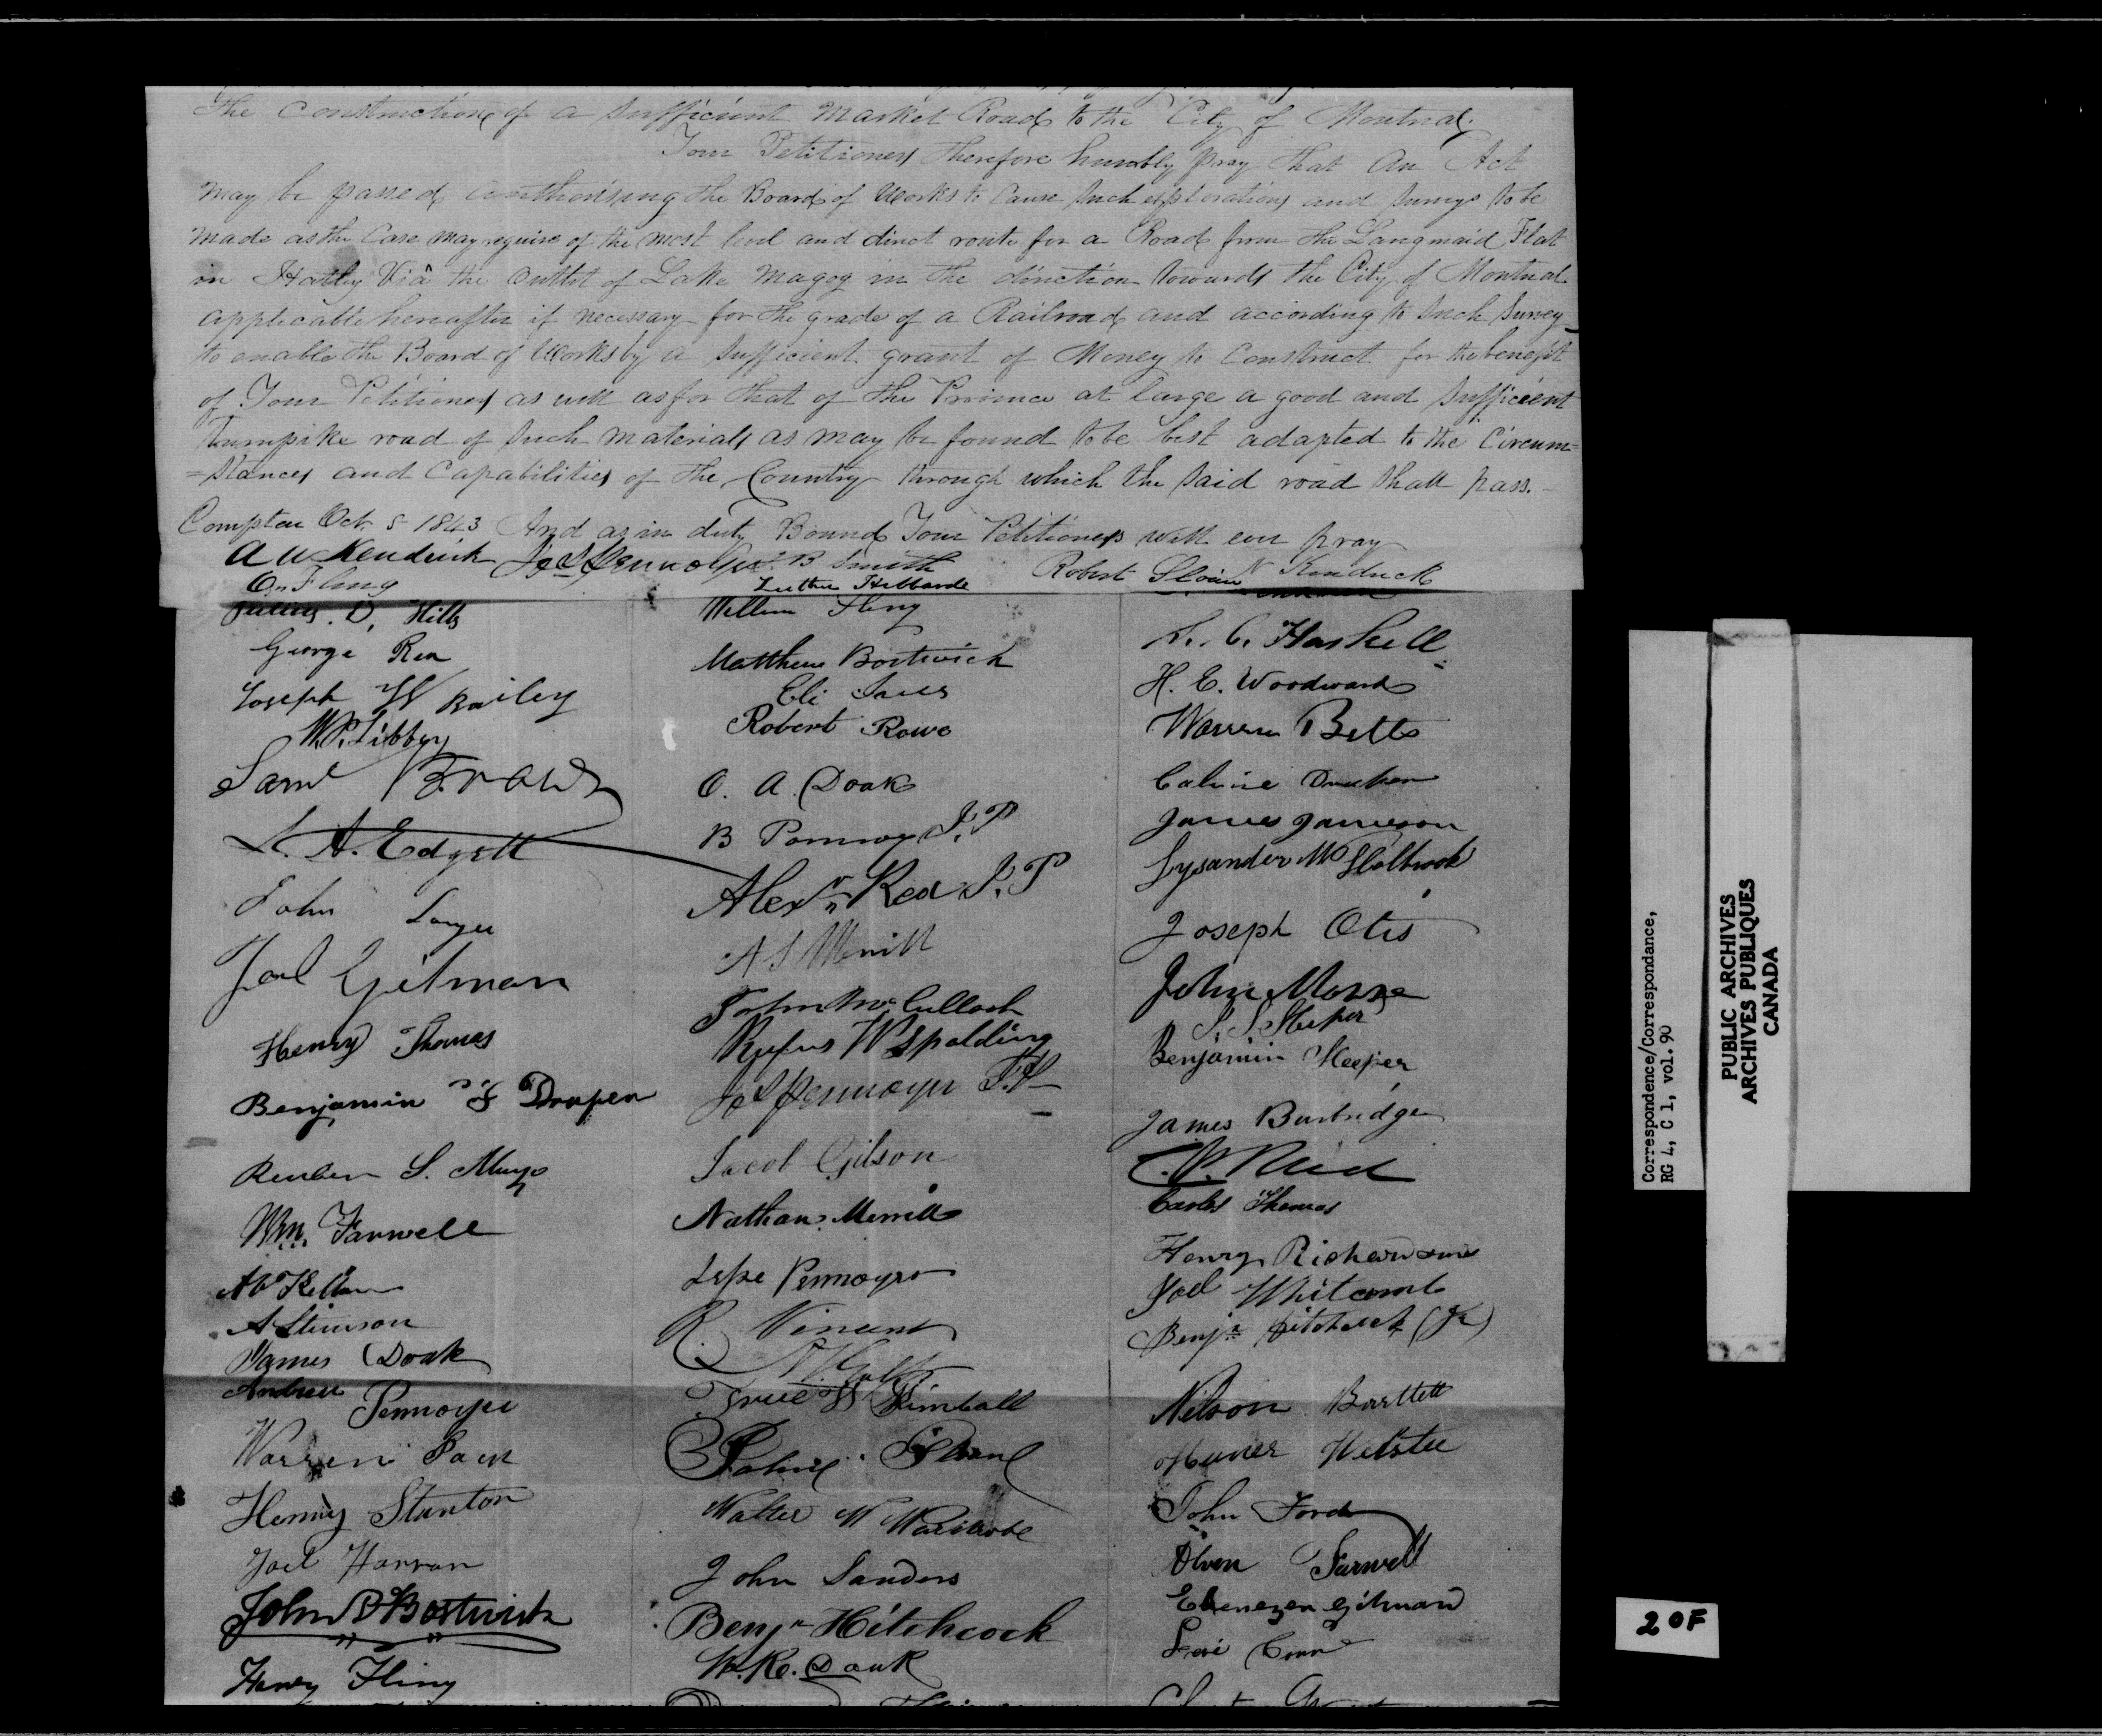 the construction of a sufficient Market Road to the City of Montreal.
Your Petitioners therefore humbly pray that An Act
may be passed authorising the Board of Works to Cause such explorations and surveys to be
made as the Case may require of the most level and direct route for a Road from the Langmaid Flat
in Hatley Viâ the outlet of Lake Magog in the direction towards the City of Montreal
applicable hereafter if necessary for the grade of a Railroad and according to such Survey
to enable the Board of Works by a sufficient grant of Money to Construct for the benefit
of Your Petitioners as well as for that of the Province at large a good and sufficient
Turnpike road of such materials as may be found to be best adapted to the Circum=
=stances and Capabilities of the Country through which the said road shall pass.
Compton Oct. 5 1843 And as in duty Bound Your Petitioners will ever pray
A W Kendrick B Smith Robert Sloan N Kendrick
O. Fling Luther Hibbard
D. Hills
George Rea
Joseph W Bailey
W.P. Libbey
Saml Brown
L. A. Edgell
John
Joel Gilman
Henry Thomas
Benjamin Draper
Reuben S. Mayo
Wm. Farwell
A Stimson
James Doak
Andrew Pennoyer
Warren
Henry Stanton
Joel Harran
John Bostwick
Henry Fling
William Fling
Matthew Bostwick
Eli
Robert Rowe
O. A. Doak
B Pomroy J.P
Alexr. Rea J.P
A S Merrill
John McCulloch
Rufus W Spalding
Jacob Gilson
Nathan Merrill
Jesse Pennoyer
R. Vincent
True W Kimball
Walter W
John Sanders
Benjn Hitchcock
W. K. Doak
L. C. Haskell
H. E. Woodward
Warren Betts
James Jameson
Lysander M Holbrook
Joseph Otis
John Morse
S. S. Sleeper
Benjamin Sleeper
James Burbridge
Thomas
Henry Richardson
Joel Whitcomb
Benjn Hitchcock (Jr)
Nelson Bartlett
John Ford
Farwell
Ebenezer Gilman
Levi
Correspondence/Correspondance,
RG 4, C 1, vol. 90
PUBLIC ARCHIVES
ARCHIVES PUBLIQUES
CANADA
2 OF